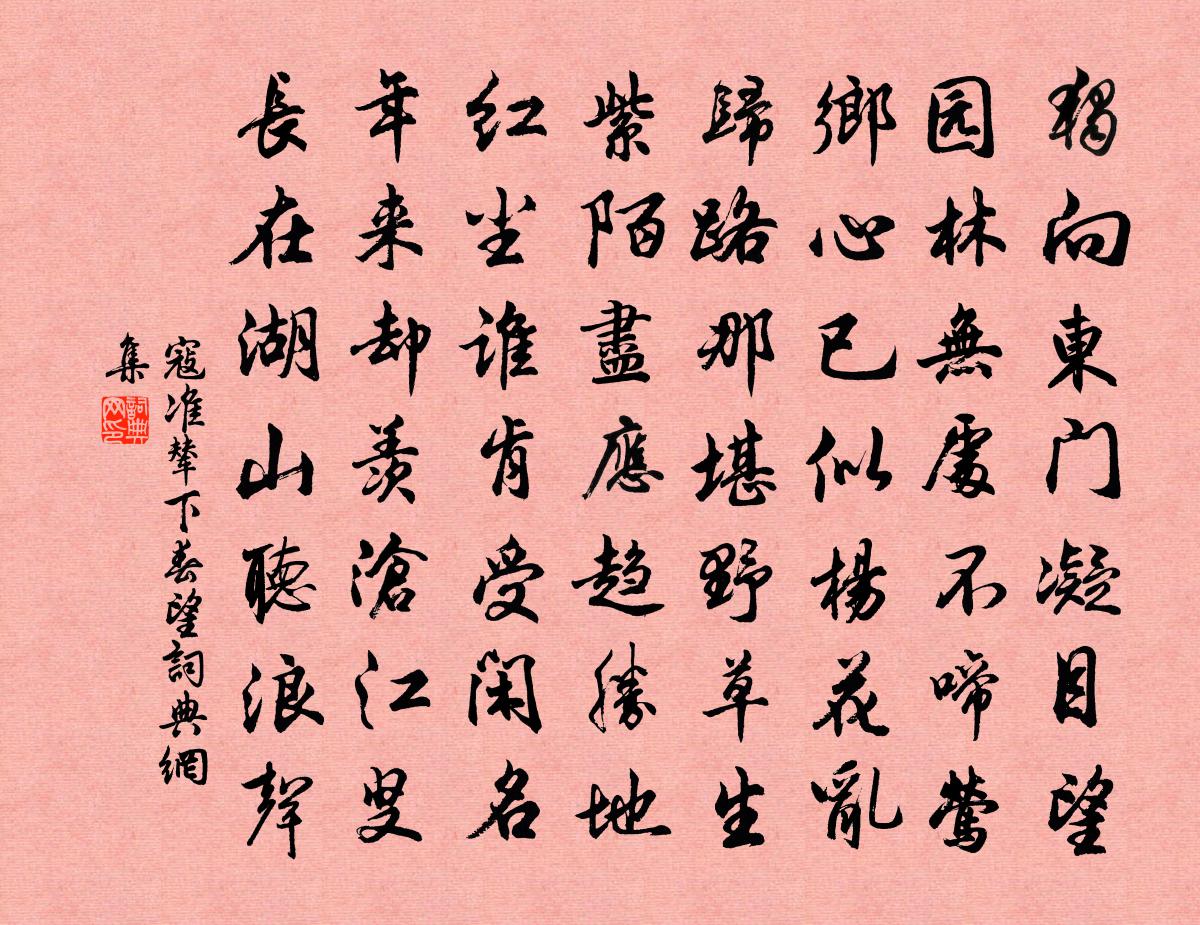 独向東门凝目望
园林無處不啼鶯
鄉心已似楊花亂
歸路那堪野草生
紫陌盡應趨勝地
红尘谁肯受闲名
年来却羨滄江叟
長在湖山聽浪聲
寇准輦下春望詞典網
集
詞典
网印